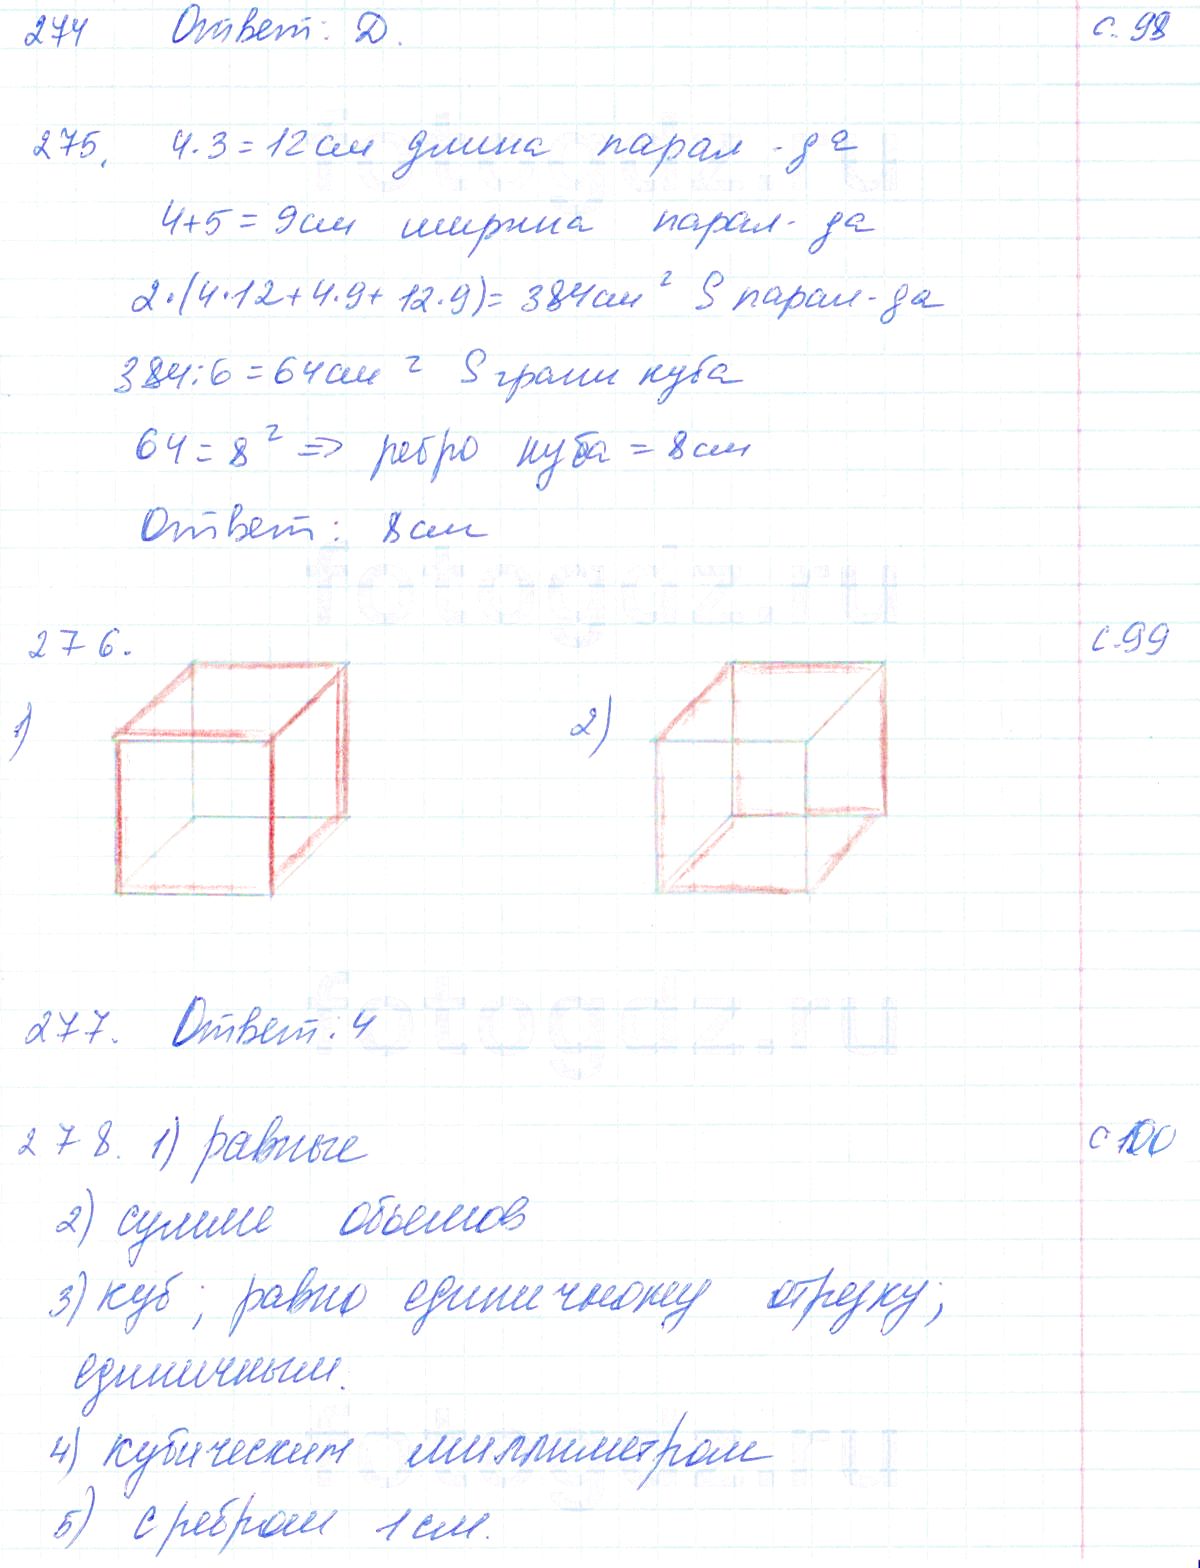 274 Ответ: D. с. 98
275. 4·3=12см длина парал-да
4+5=9см ширина парал-да
2·(4·12+4·9+12·9)=384см² S парал-да
384:6=64см² S грани куба
64=8² => ребро куба = 8см
Ответ: 8см
276. с.99
1) 2)
277. Ответ: 4
278. 1) равные с 100
2) сумме объемов
3) куб; равно единичному отрезку;
единичным.
4) кубическим миллиметром
5) с ребром 1см.